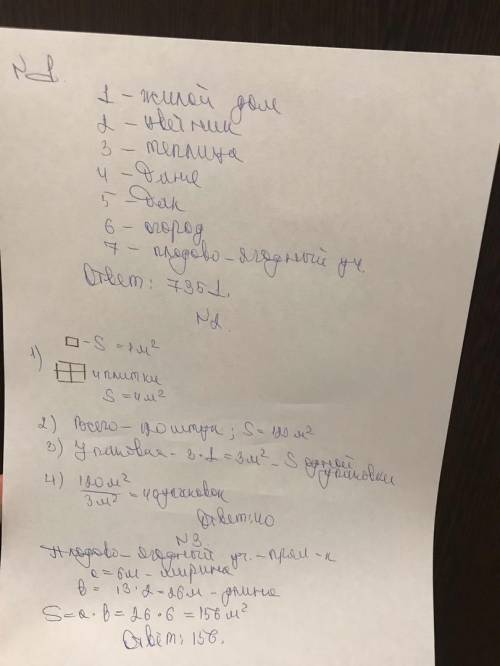 N1.
1 – жилой дом
2 – цветник
3 – теплица
4 – баня
5 – бак
6 – огород
7 – плодово-ягодный уч.
Ответ: 7351.
N2.
1) □ – S = 1 м²
4 плитки
S = 4 м²
2) Всего – 120 штук; S = 120 м²
3) Упаковка – 3·1 = 3 м² – S одной упаковки
4) 120 м² / 3 м² = 40 упаковок
Ответ: 40
N3.
Плодово-ягодный уч. – прям-к
a = 6 м – ширина
b = 13·2 = 26 м – длина
S = a·b = 26·6 = 156 м²
Ответ: 156.